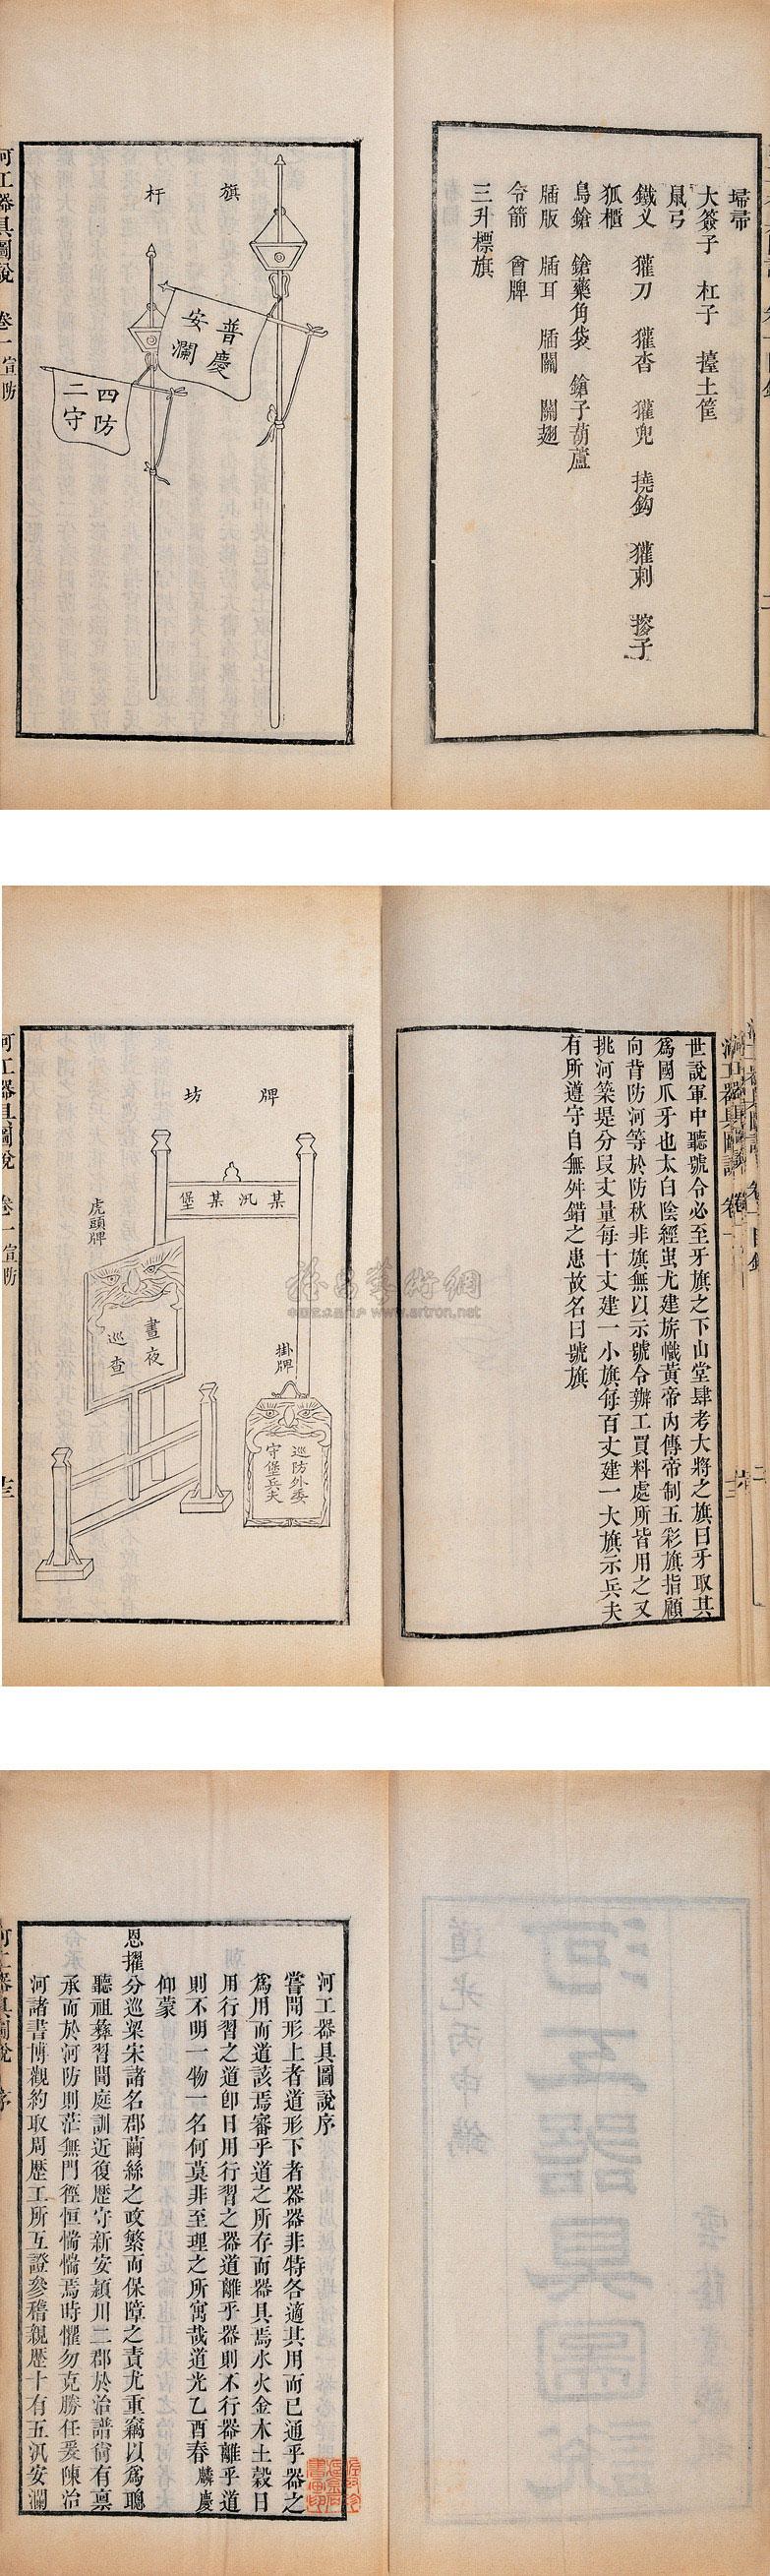 埽帚
大簽子 杠子 擡土筐
鼠弓
鐵叉 獾刀 獾沓 獾兜 撓鈎 獾刺
狐櫃
鳥鎗 鎗藥角袋 鎗子葫蘆
牐版 牐耳 牐關 關翅
令箭 會牌
三升標旗
旗杆
普慶
安瀾
四防
二守
河工器具圖說 卷一 宣防
世說軍中聽號令必至牙旗之下山堂肆考大將之旗曰牙取其
爲國爪牙也太白陰經蚩尤建旂幟黃帝內傳帝制五彩旗指顧
向背防河等於防秋非旗無以示號令辦工買料處所皆用之又
挑河築堤分段丈量每十丈建一小旗每百丈建一大旗示兵夫
有所遵守自無舛錯之患故名曰號旗
河工器具圖說 卷一
牌坊
某汛某堡
虎頭牌
晝夜
巡查
掛牌
巡防外委
守堡兵夫
河工器具圖說 卷一 宣防
www.artron.net
河工器具圖說
道光丙申鐫
河工器具圖說序
嘗聞形上者道形下者器器非特各適其用而已通乎器之
爲用而道該焉審乎道之所存而器具焉水火金木土穀日
用行習之道卽日用行習之器道離乎器則不行器離乎道
則不明一物一名何莫非至理之所寓哉道光乙酉春麟慶
仰蒙
恩擢分巡梁宋諸名郡繭絲之政繁而保障之責尤重竊以爲聽
聽祖彝習聞庭訓近復歷守新安潁川二郡於治譜尙有稟
承而於河防則茫無門徑恒惴惴焉時懼勿克勝任爰陳治
河諸書博觀約取周歷工所互證參稽親歷十有五汛安瀾
河工器具圖說 序